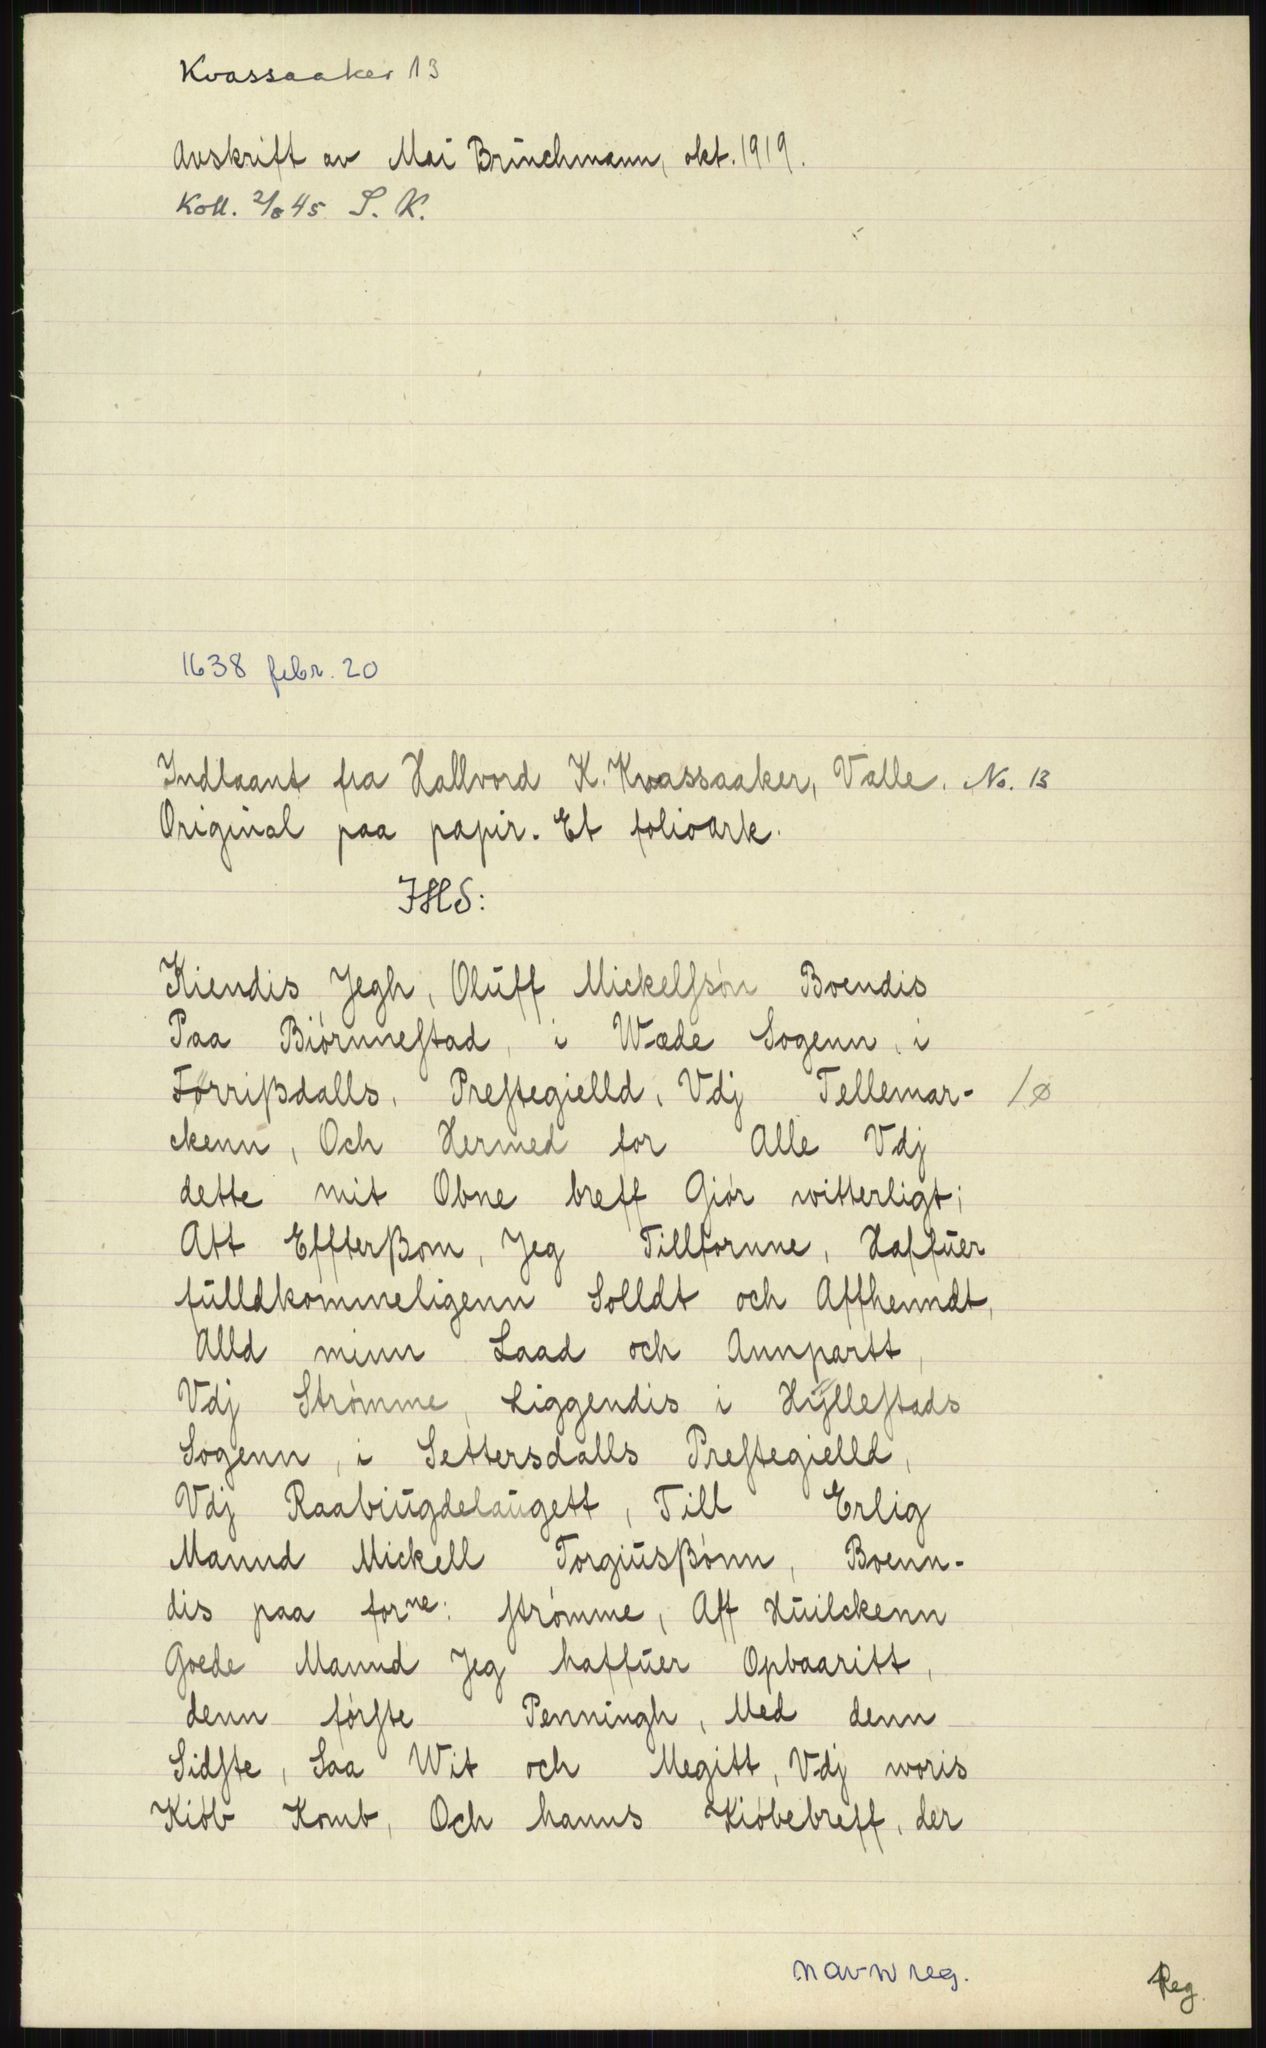 Kvassaaker 13
Avskrift av Mai Brünchmann, okt. 1919.
Koll. 2/8 45 S. K.
1638 febr. 20
Indlaant fra Hallvord K. Kvassaaker, Valle. No. 13
Original paa papir. Et folioark.
IHS:
Kiendis Jegh, Olüff Mickelſsón Boendis
Paa Biórnneſtad, i Wæde Sogenn, i
Førrißdalls, Preſtegielld, Vdj Tellemar- /ø
ckenn, Och Hermed for Alle Vdj
dette mit Obne breff Giór witterligt;
Att Effterßom, Jeg Tillfornne, Haffüer
fülldkommeligenn Solldt och Affhenndt,
Alld minn Laad och Annpartt,
Vdj Strómme, Liggendis i Hÿlleſtads
Sogenn, i Settersdalls Preſtegielld,
Vdj Raabiügdelaügett, Till Erlig
Mannd Mickell Torgiüsßónn, Boenn-
dis paa forne: ſtrómme, Aff Hüilckenn
Goede Mannd Jeg haffüer Opbaaritt,
denn fórſte Penningh, Med denn
Sidſte, Saa Wit och Megitt, Vdj woris
Kiób Komb, Och hanns Kióbebreff, der
navnreg.
Reg.